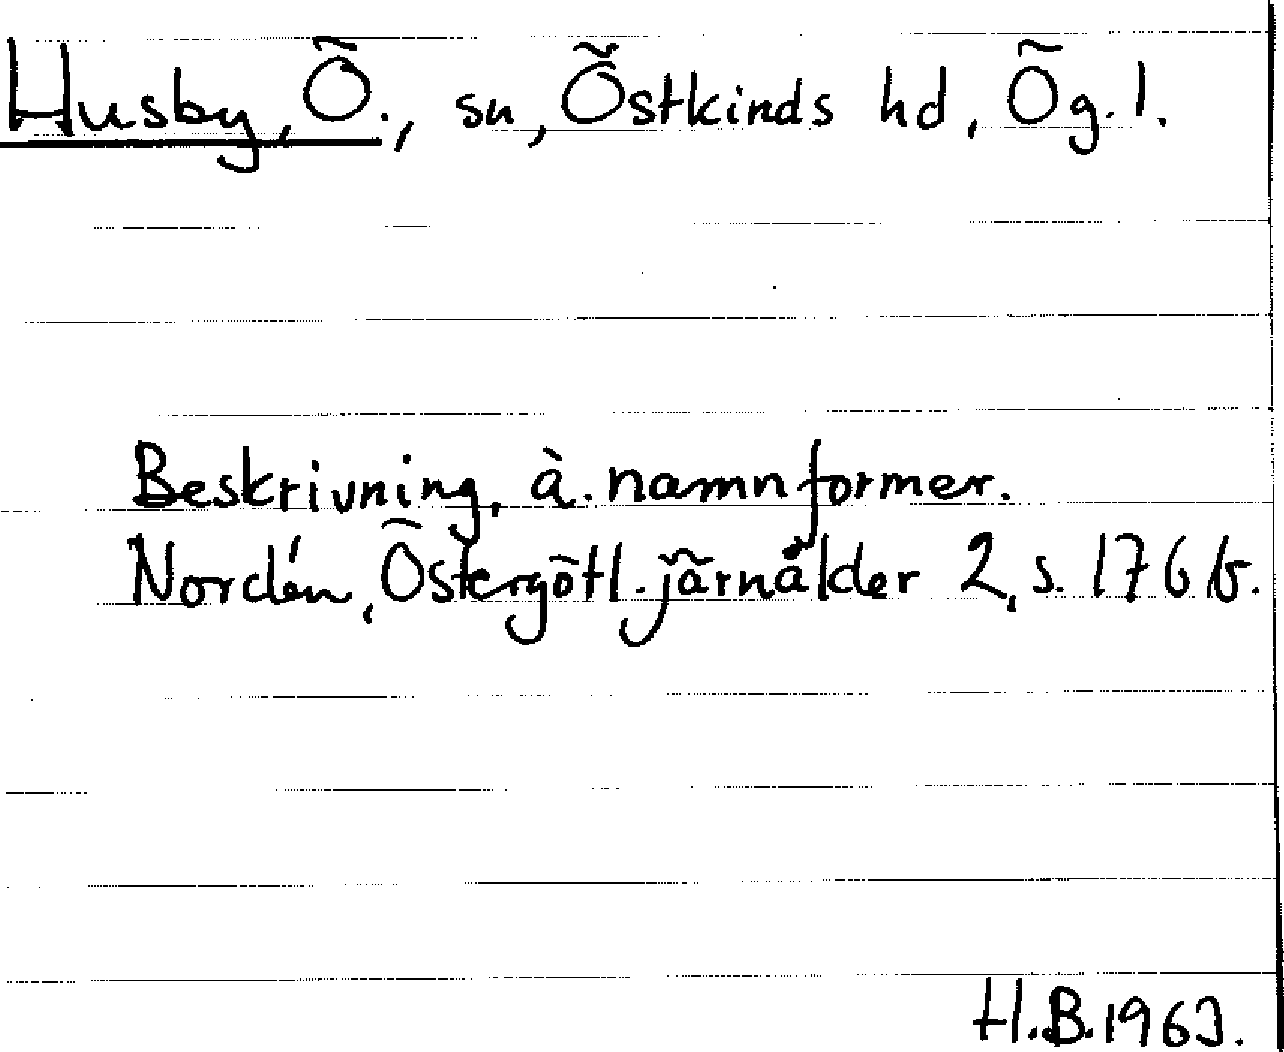 Husby, Ö., sn, Östkinds hd, Ög.l.
Beskrivning, ä. namnformer.
Nordén, Östergötl. järnålder 2, s. 176 b.
H.B. 1963.